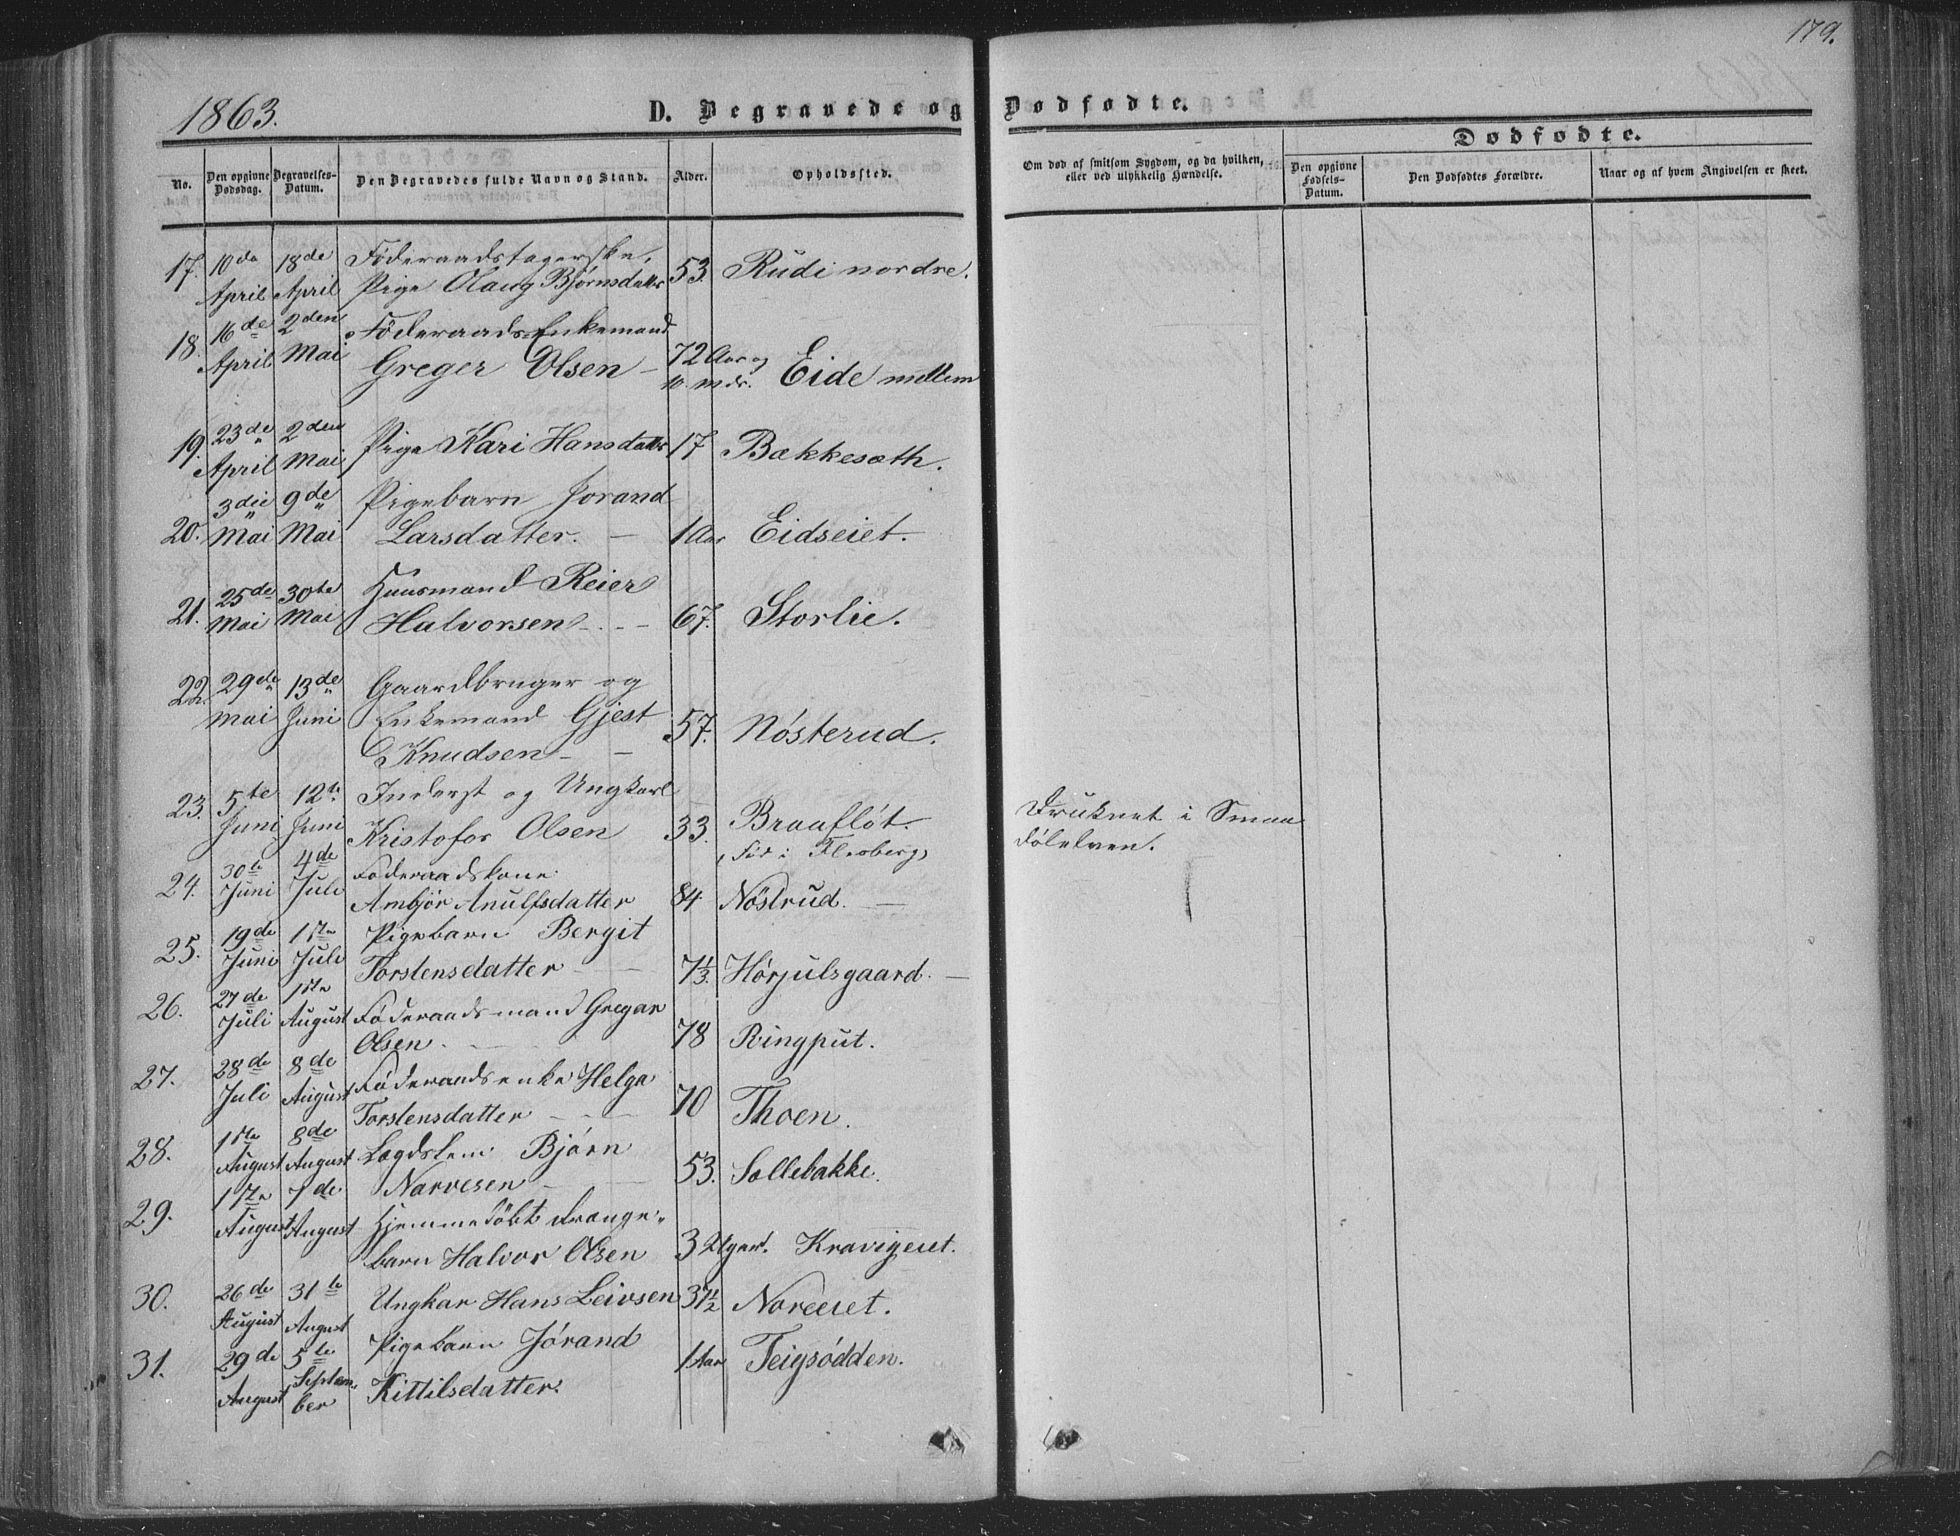 179.
1863.
D. Begravede og Dødfødte.
Dødfødte.
No.
Den opgivne Dødsdag.
Begravelses-Datum.
Den Begravedes fulde Navn og Stand.
Alder.
Opholdssted.
Om død af smitsom Sygdom, og da hvilken,
eller ved ulykkelig Hændelse.
Den opgivne Fødsels-Datum.
Den Dødfødtes Forældre.
Naar og af hvem Angivelsen er skeet.
17. 10de April 18de April Föderaadstagerske,
Pige Olaug Bjørnsdatter 53. Rudi nordre.
18. 16de April 2den Mai Föderaads Enkemand
Greger Olsen – 72 Aar og 10 mdr. Eide mellem
19. 23de April 2den Mai Pige Kari Hansdatter 17 Bækkesæth.
20. 3die Mai 9de Mai Pigebarn Jorand
Larsdatter. – 1 Aar Eidseiet.
21. 25de Mai 30te Mai Huusmand Reier
Halvorsen – 67. Storlie.
22. 29de Mai 13de Juni Gaardbruger og
Enkemand Gjest
Knudsen – 57. Nösterud.
23. 5te Juni 12te Juni Inderst og Ungkarl
Kristofor Olsen 33. Braaflöt.
(Fød i Flesberg)
Druknet i Smaa
dölelven.
24. 30te Juni 4de Juli Föderaadskone
Ambjör Anulfsdatter 84 Nöstrud. –
25. 19de Juni 1ste Juli Pigebarn Bergit
Torstensdatter – 7 1/3. Hørjulsgaard. –
26. 27de Juli 1ste August Föderaadsmand Gregar
Olsen. 78 Ringput.
27. 28de Juli 8de August Föderaadsenke Helga
Torstensdatter – 70 Thoen.
28. 1ste August 8de August Lægdslem Björn
Narvesen – 53. Sollebakke.
29. 1ste August 7de August Hjemmedöbt Drenge-
barn Halvor Olsen 3 Uger. Kravigeiet.
30. 26de August 31te August Ungkar Hans Leivsen 37 1/2 Noreeiet.
31. 29de August 5te September Pigebarn Jörand
Kittilsdatter. 1 Aar Teigsödden.